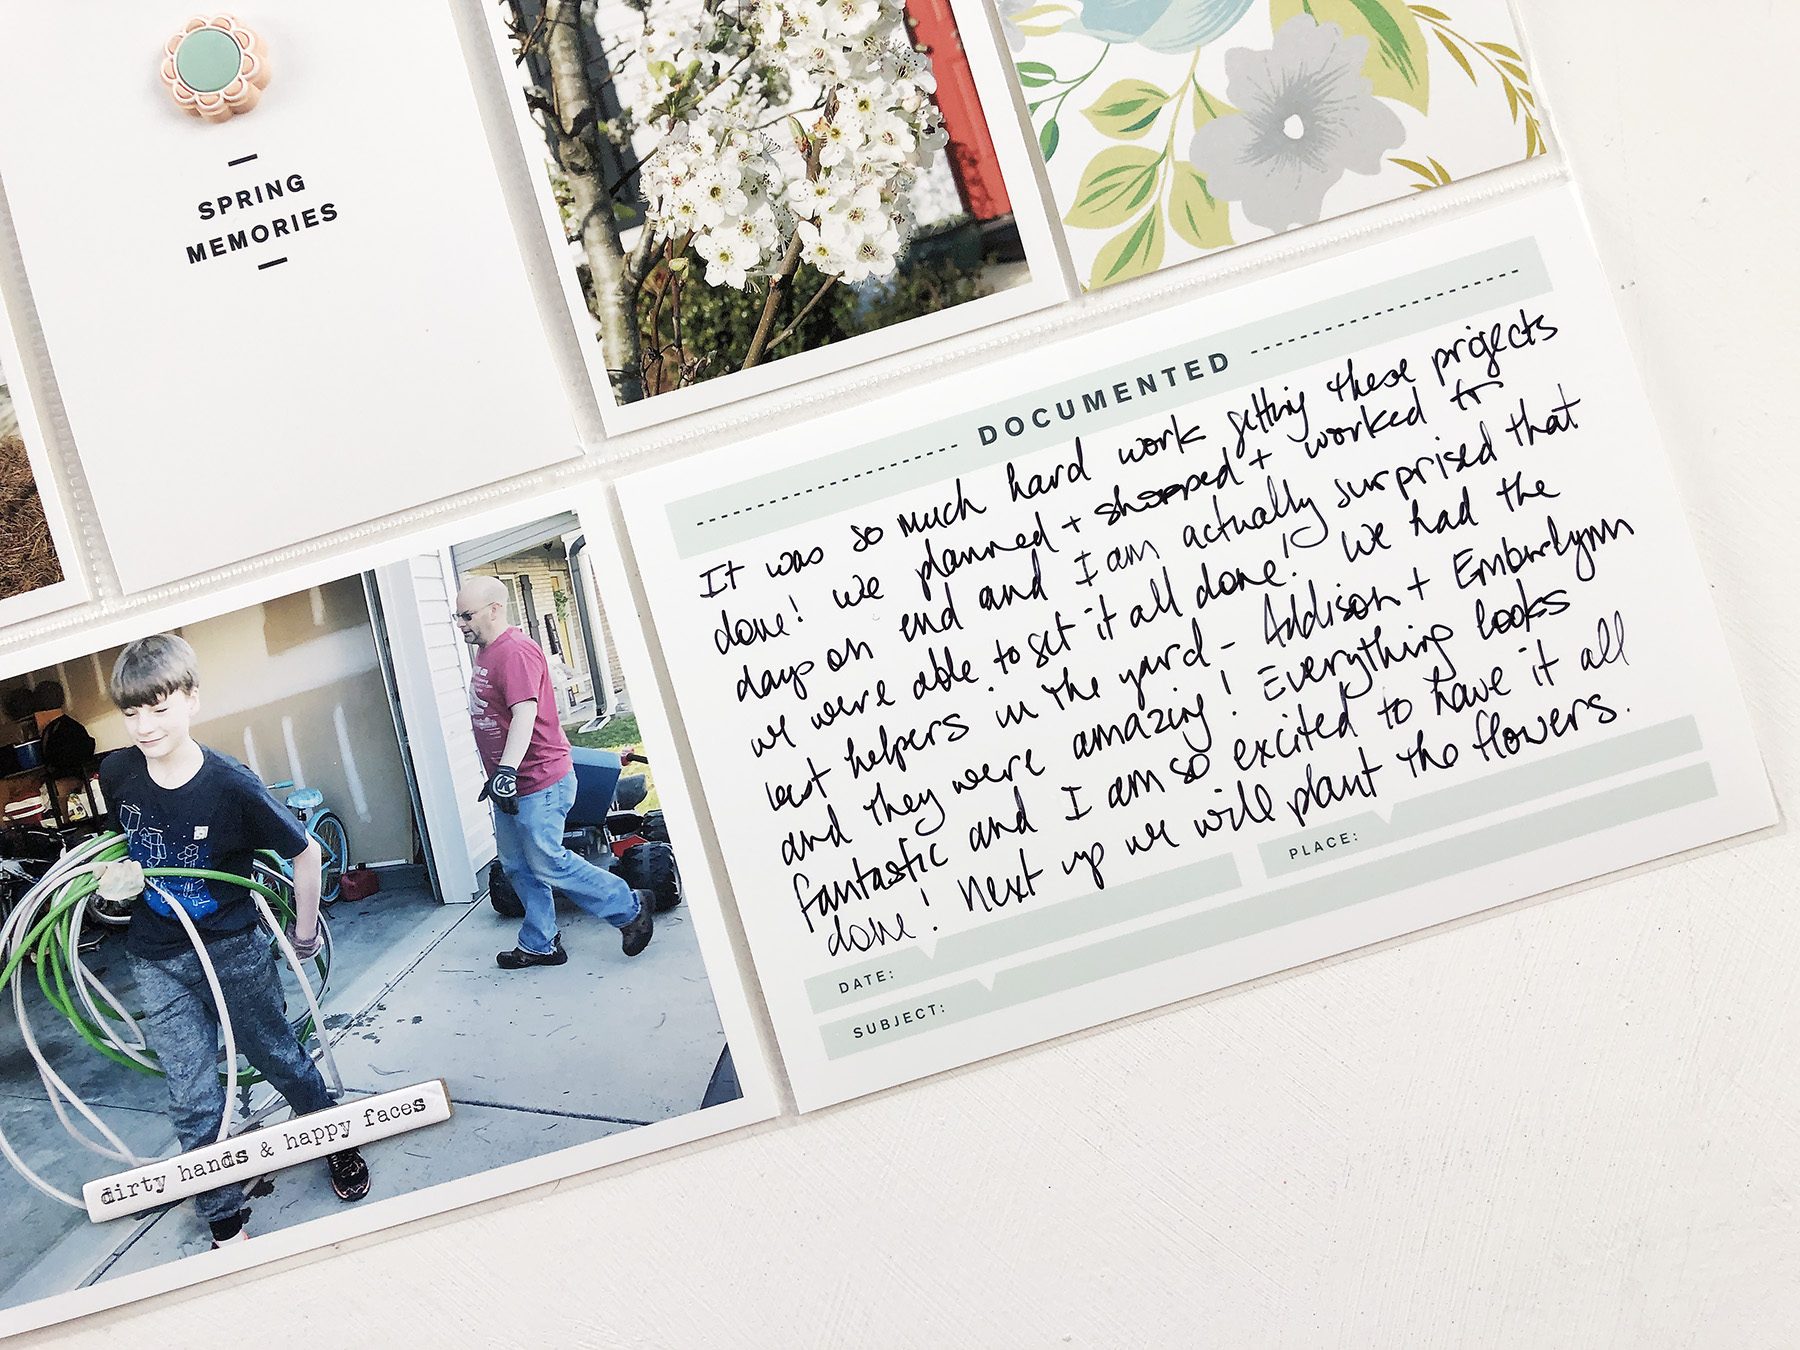 SPRING
MEMORIES
DOCUMENTED
It was so much hard work getting these projects
done! We planned + shopped + worked for
days on end and I am actually surprised that
we were able to get it all done! We had the
best helpers in the yard - Addison + Emberlynn
and they were amazing! Everything looks
fantastic and I am so excited to have it all
done! Next up we will plant the flowers.
DATE:
PLACE:
SUBJECT:
dirty hands & happy faces